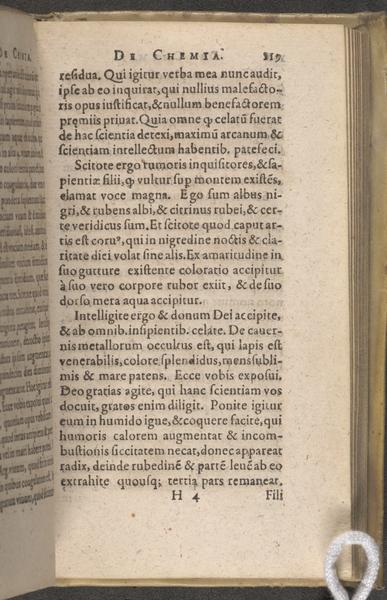 DE CHEMIA. 119.
residua. Qui igitur verba mea nunc audit,
ipse ab eo inquirat, qui nullius malefacto-
ris opus iustificat, & nullum benefactorem
premiis priuat. Quia omne ꝙ celatũ fuerat
de hac scientia detexi, maximũ arcanum &
scientiam intellectum habentib. patefeci.
Scitote ergo rumoris inquisitores, & sa-
pientiæ filii, ꝙ vultur sup montem existẽs,
clamat voce magna. Ego sum albus ni-
gri, & rubens albi, & citrinus rubei, & cer-
te veridicus sum. Et scitote quod caput ar-
tis est coruꝰ, qui in nigredine noctis & cla-
ritate diei volat sine alis. Ex amaritudine in
suo gutture existente coloratio accipitur
à suo vero corpore rubor exiit, & de suo
dorso mera aqua accipitur.
Intelligite ergo & donum Dei accipite,
& ab omnib. insipientib. celate. De cauer-
nis metallorum occultus est, qui lapis est
venerabilis, colore splendidus, mens subli-
mis & mare patens. Ecce vobis exposui.
Deo gratias agite, qui hanc scientiam vos
docuit, gratos enim diligit. Ponite igitur
eum in humido igne, & coquere facite, qui
humoris calorem augmentat & incom-
bustionis siccitatem necat, donec appareat
radix, deinde rubedinẽ & partẽ leuẽ ab eo
extrahite quousq; tertia pars remaneat.
H 4 Fili